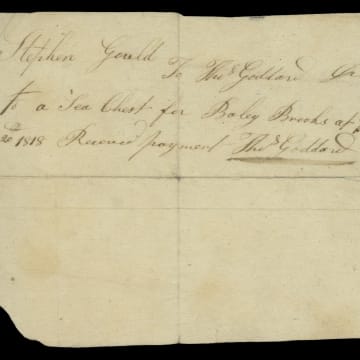 Stephen Gould To Thos Goddard Dr
To a Sea Chest for Baley Brooks at
1818 Received payment Thos Goddard